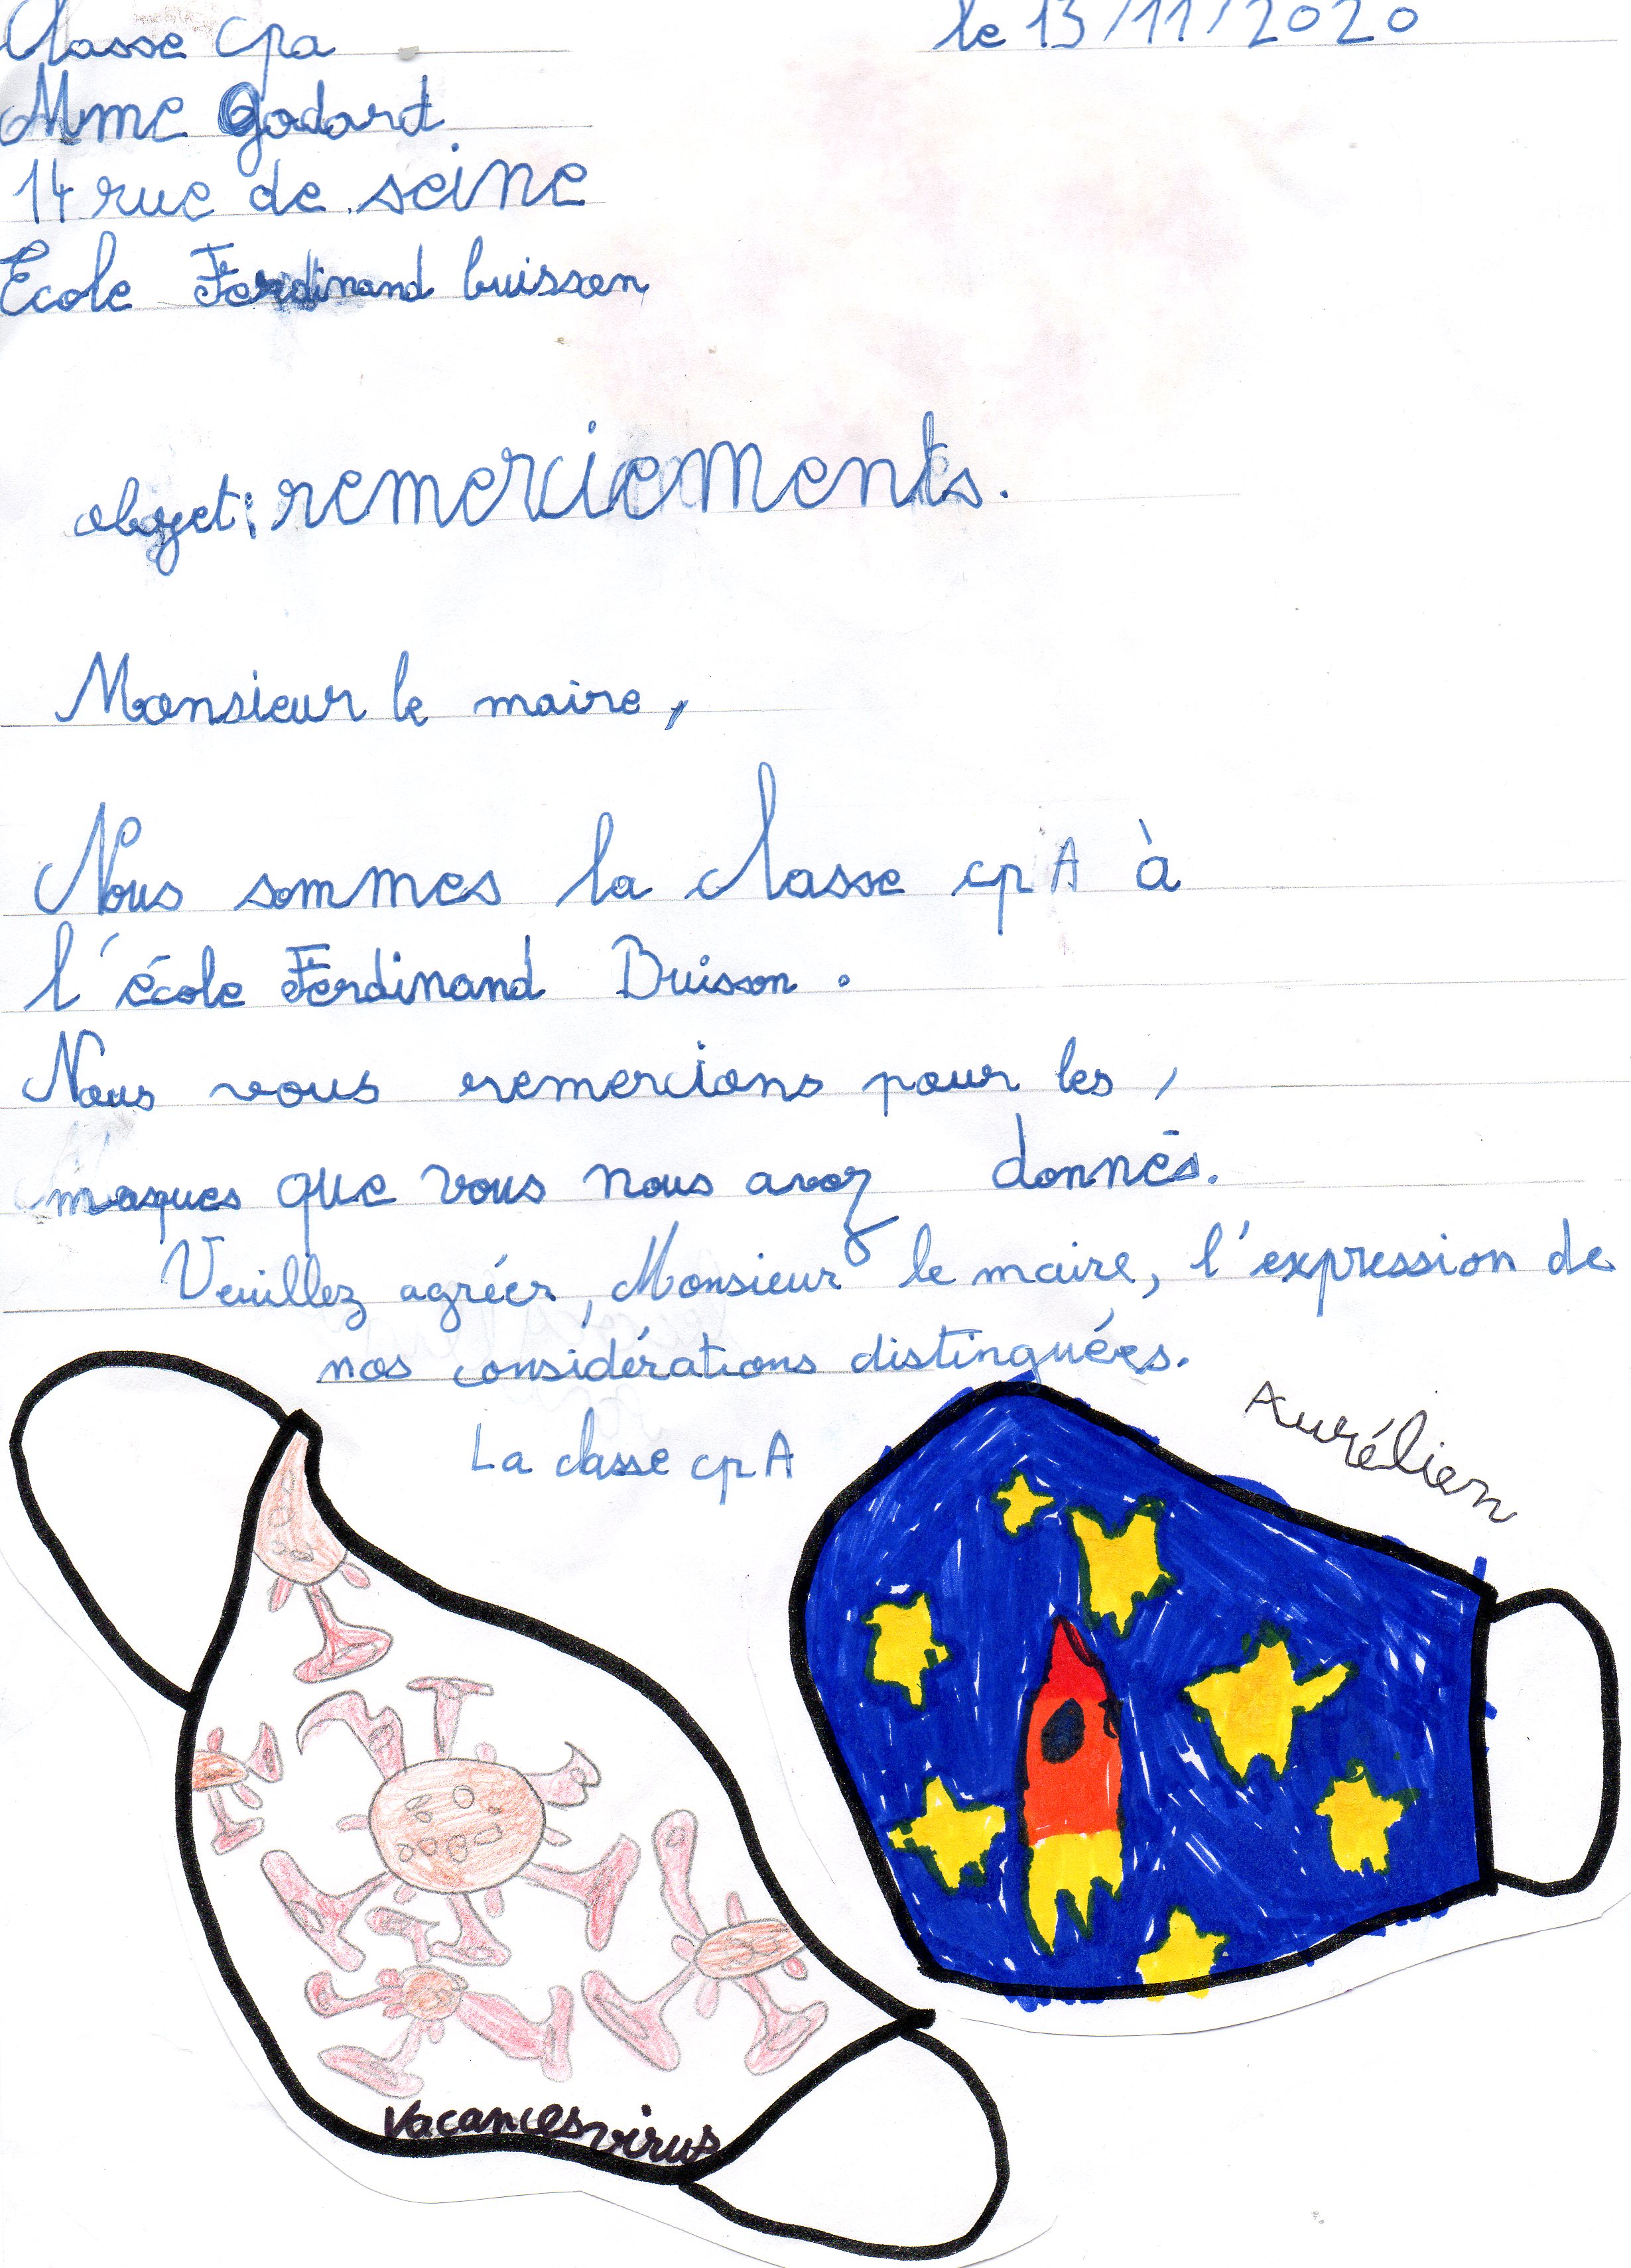 Classe cpa
le 13/11/2020
Mme Godart
14 rue de seine
Ecole Ferdinand buisson
objet: remerciements.
Monsieur le maire,
Nous sommes la classe cp A à
l'école Ferdinand Buisson.
Nous vous remercions pour les,
masques que vous nous avez donnés.
Veuillez agréer, Monsieur le maire, l'expression de
nos considérations distinguées.
La classe cp A
Aurélien
Vacancesvirus